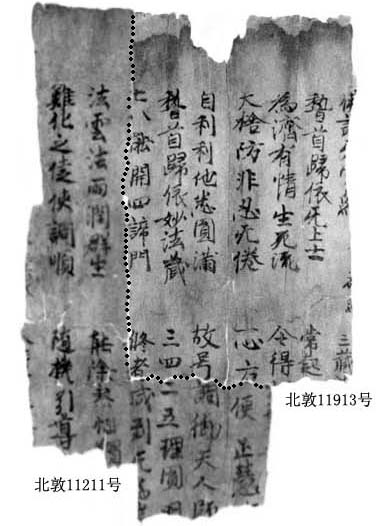 三藏
稽首歸依无上士 常起
為濟有情生死流 令得
大捨防非忍无倦 一心方便正慧
自利利他悉圓滿 故号調御天人師
稽首歸依妙法藏 三四二五理圓
八能開四諦門 修者咸到无為
法雲法雨潤群生 能除熱惱
難化之徒使調順 隨機引導
北敦11913号
北敦11211号